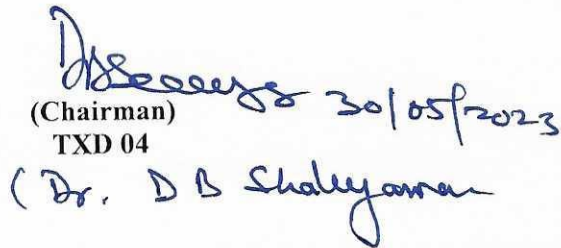 30/05/2023
(Chairman)
TXD 04
(Dr. D B Shakyawar